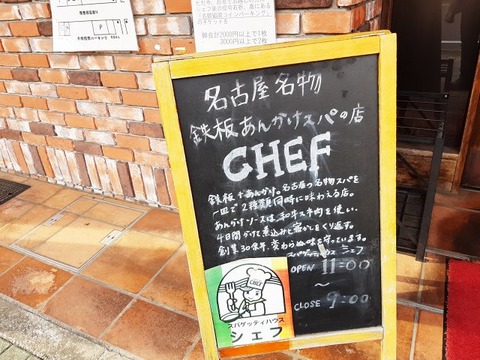 会計2000円以上で1枚
3000円以上で2枚
名古屋名物
鉄板あんかけスパの店
CHEF
鉄板+あんかけ。名古屋の名物スパを
一皿で2種類同時に味わえる店。
あんかけソースは和牛スネ肉を使い、
4日間かけて煮込みと寝かしをくり返す。
創業30余年、変わらぬ味を守っています。
スパゲッティハウス シェフ
OPEN 11:00
~
CLOSE 9:00
CHEF
スパゲッティハウス
シェフ